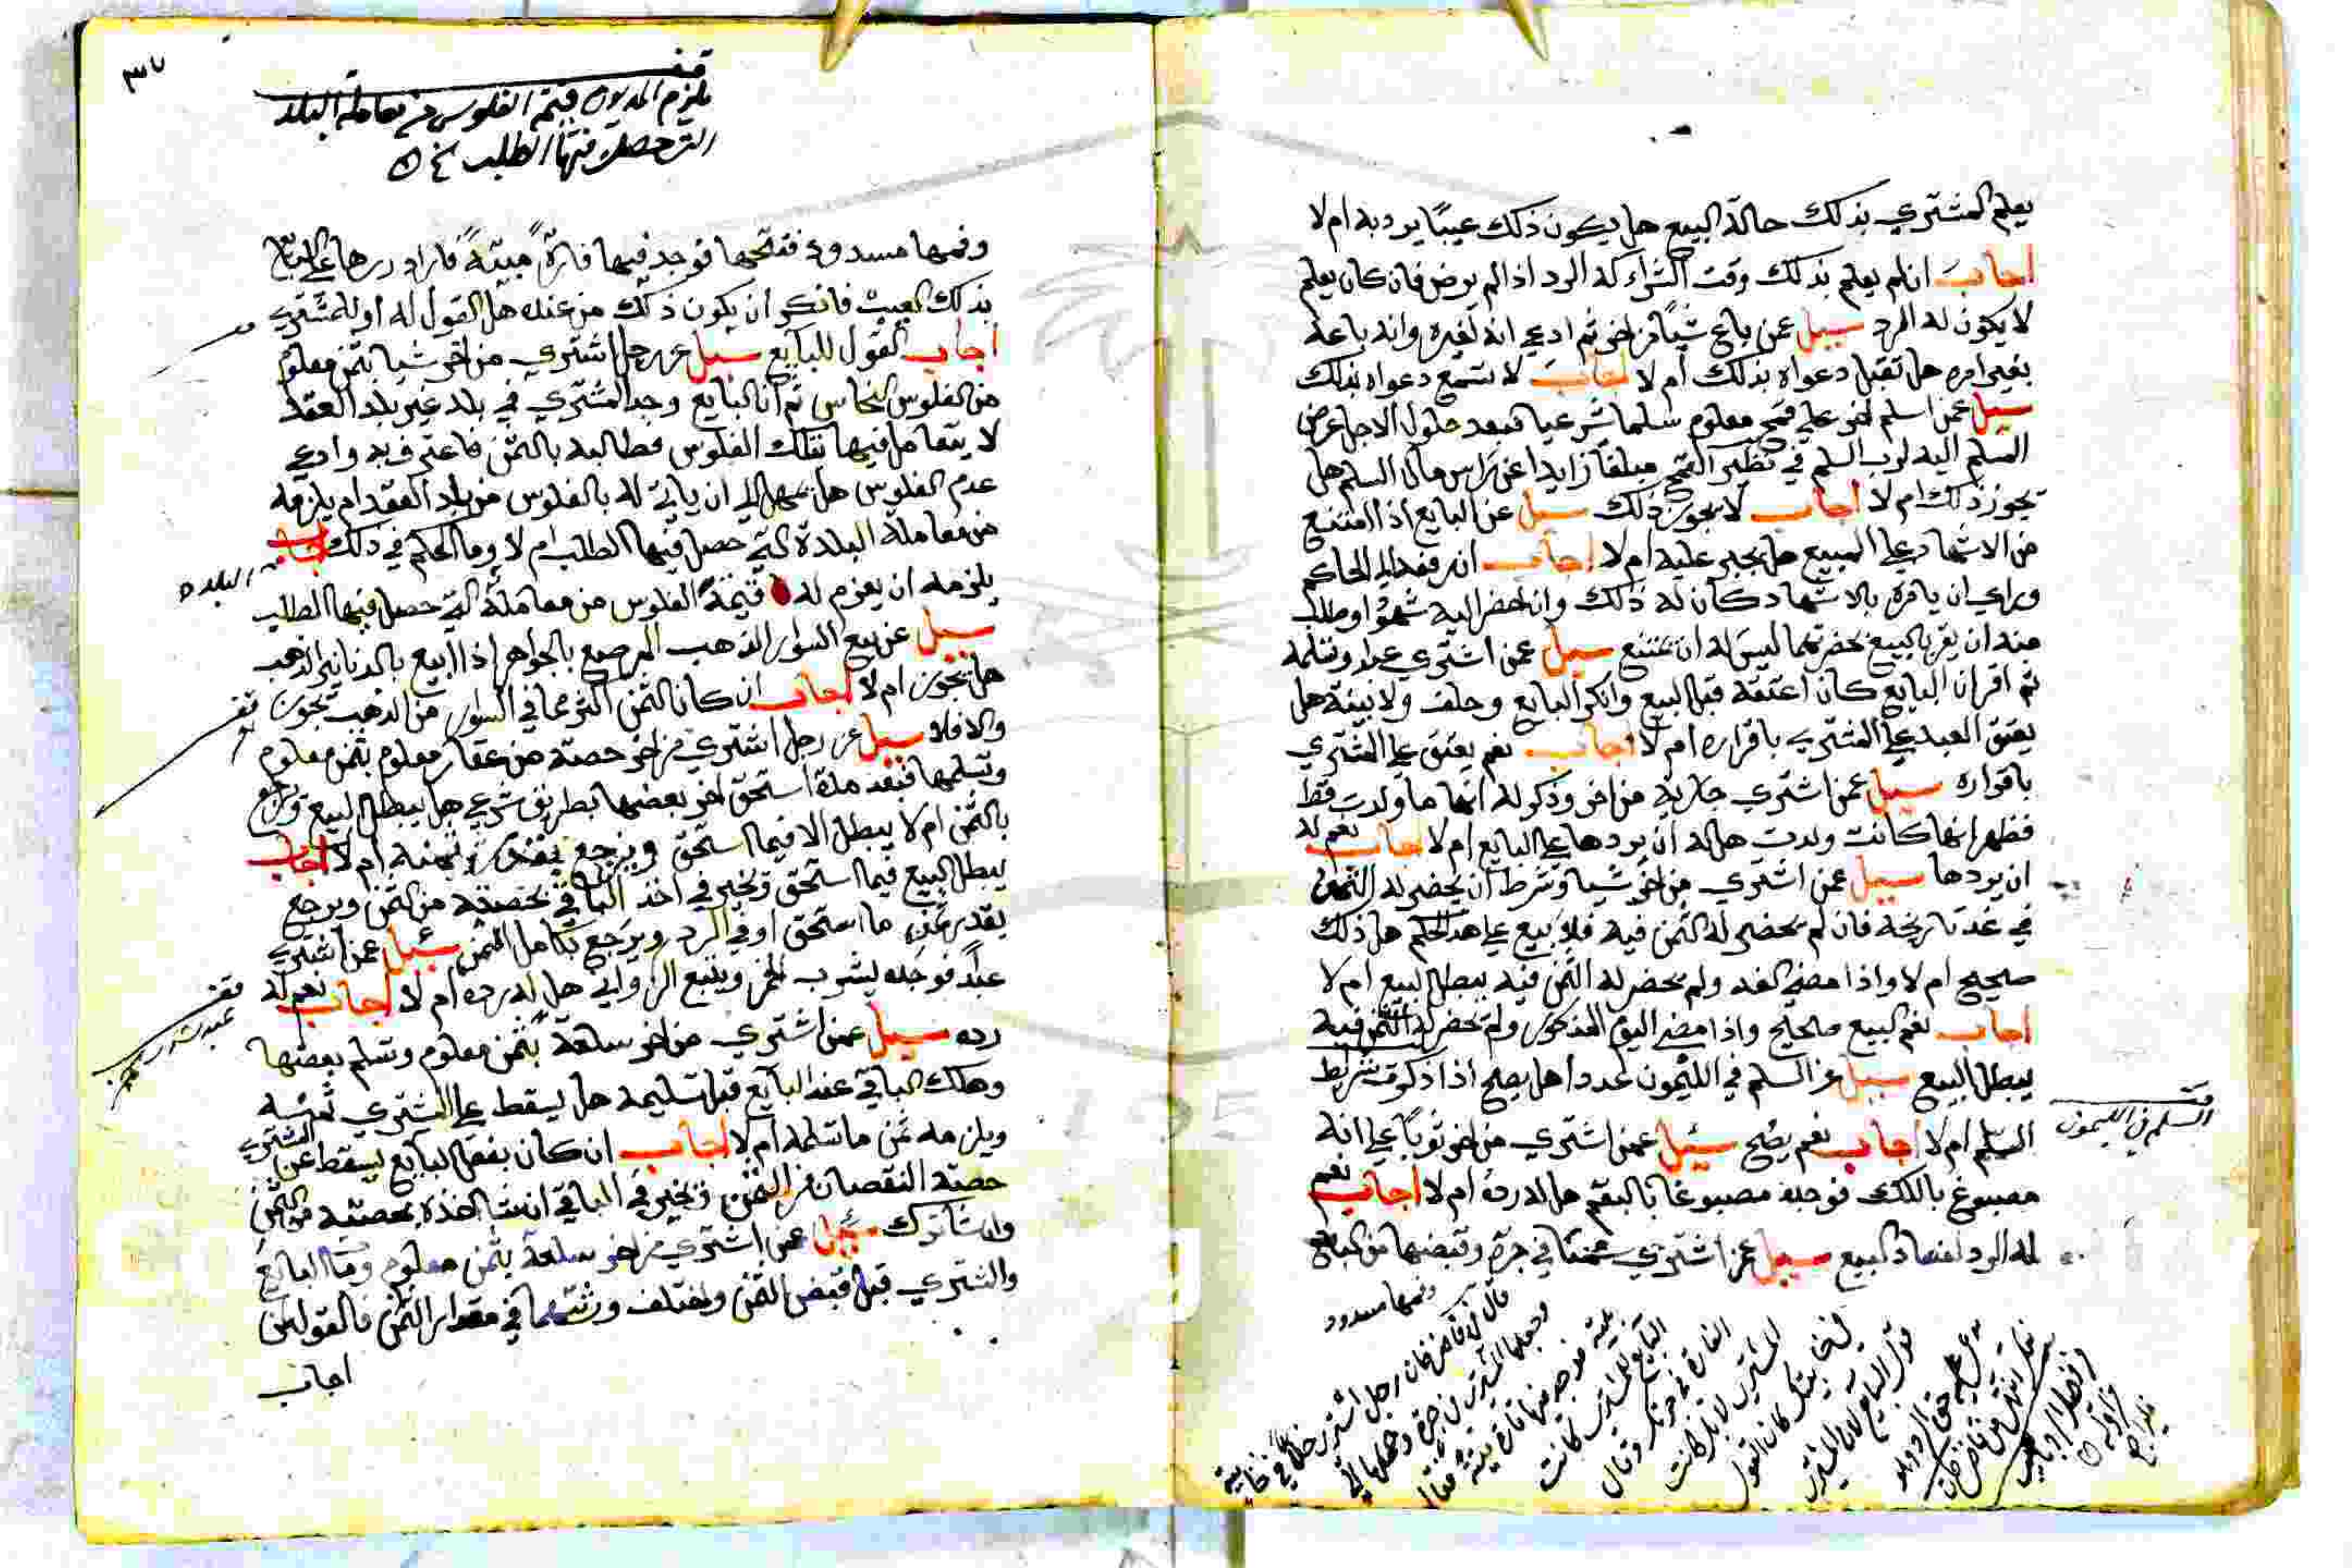 يعلم المشتري بذلك حالة البيع هل يكون ذلك عيبًا يرد به ام لا
اجاب ان لم يعلم بذلك وقت الشراء له الرد اذا لم يرض فان كان يعلم
لا يكون له الرد سيل عمن باع شيًا من اخر ثم ادعي انه لغيره وانه باعه
بغير امره هل تقبل دعواه بذلك ام لا اجاب لا تسمع دعواه بذلك
سيل عمن اسلم اخر علي قمح معلوم سلما شرعيا فبعد حلول الاجل عرض
المسلم اليه لرب السلم في نظير القمح مبلغا زايدا عن راس مال السلم هل
يجوز ذلك ام لا اجاب لا يجوز ذلك سيل عن البايع اذا امتنع
من الاشهاد علي المبيع هل يجبر عليه ام لا اجاب ان رفعه الي الحاكم
وراي ان يامره بالاشهاد كان له ذلك وان احضر اليه شهودا وطلب
منه ان يقر بالبيع بحضرتهما ليس له ان يمتنع سيل عمن اشتري عبدا وتسلمه
ثم اقر ان البايع كان اعتقه قبل البيع وانكر البايع وحلف ولا بينة هل
يعتق العبد علي المشتري باقراره ام لا اجاب نعم يعتق علي المشتري
باقراره سيل عمن اشتري جارية من اخر وذكر له انها ما ولدت قط
فظهر انها كانت ولدت هل له ان يردها علي البايع ام لا اجاب نعم له
ان يردها سيل عمن اشتري من اخر شيا وشرط ان يحضر له الثمن
في غد تاريخه فان لم يحضر له الثمن فيه فلا بيع علي هذا الحكم هل ذلك
صحيح ام لا واذا مضي الغد ولم يحضر له الثمن فيه يبطل البيع ام لا
اجاب نعم البيع صحيح واذا مضي اليوم المذكور ولم يحضر له الثمن فيه
يبطل البيع سيل عن السلم في الليمون عددا هل يصح اذا ذكرت شرايط
السلم ام لا اجاب نعم يصح سيل عمن اشتري من اخر ثوبا علي انه
مصبوغ باللك فوجده مصبوغا بالبقم هل له رده ام لا اجاب نعم
له الرد لفساد البيع سيل عمن اشتري سمنا في جرة وقبضها من البايع
وفمها مسدود
السلم في الليمون
قال في قاضي خان رجل اشتري خلا في خابية
وحملها المشتري في جرة
فوجد فيها فارة ميتة فقال
البايع للمشتري كانت
الفارة في جرتك وقال
المشتري لا بل كانت
في خابيتك كان القول
قول البايع
٣٧
يلزم المديون قيمة الفلوس من معاملة البلد
التي حصل فيها الطلب
وفمها مسدود ففتحها فوجد فيها فارة ميتة فاراد ردها علي البايع
بذلك العيب فانكر ان يكون ذلك من عنده هل القول له او للمشتري
اجاب القول للبايع سيل عن رجل اشتري من اخر شيا بثمن معلوم
من الفلوس النحاس ثم ان البايع وجد المشتري في بلد غير بلد العقد
لا يتعامل فيها بتلك الفلوس فطالبه بالثمن فاعترف به وادعي
عدم الفلوس هل يمهل الي ان ياتي له بالفلوس من بلد العقد ام يلزمه
من معاملة البلدة التي حصل فيها الطلب ام لا وما الحكم في ذلك اجاب
يلزمه ان يغرم له قيمة الفلوس من معاملة التي حصل فيها الطلب
البلده
سيل عن بيع السوار الذهب المرصع بالجواهر اذا ابيع بالدنانير الذهب
هل يجوز ام لا اجاب ان كان الثمن اكثر مما في السوار من الذهب يجوز
والا فلا سيل عن رجل اشتري من اخر حصة من عقار معلوم بثمن معلوم
وتسلمها فبعد مدة استحق اخر بعضها بطريق شرعي هل يبطل البيع ويرجع
بالثمن ام لا يبطل الا فيما استحق ويرجع بقدره من ثمنه ام لا اجاب
يبطل البيع فيما استحق ويخير في اخذ الباقي بحصته من الثمن ويرجع
بقدر ثمن ما استحق او في الرد ويرجع بكامل الثمن سئيل عمن اشتري
عبدًا فوجده يشرب الخمر ويتبع الزواني هل له رده ام لا اجاب نعم له
رده سيل عمن اشتري من اخر سلعة بثمن معلوم وتسلم بعضها
وهلك الباقي عند البايع قبل تسليمه هل يسقط علي المشتري ثمنه
ويلزمه ثمن ما تسلمه ام لا اجاب ان كان بفعل البايع يسقط عن المشتري
حصة النقصان من الثمن ويخير في الباقي ان شا اخذه بحصته من الثمن
وان شا ترك سيل عمن اشتري من اخر سلعة بثمن معلوم ومات البايع
والمشتري قبل قبض الثمن واختلف ورثتهما في مقدار الثمن فالقول لمن
اجاب